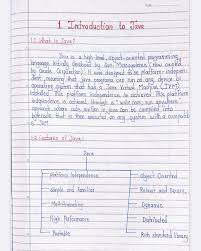 1. Introduction to Java
1.1 What is Java?
Java is a high-level, object-oriented programming
language initially developed by Sun Microsystems (Now owned
by Oracle Corporation). It was designed to be platform-indepen-
dent, meaning that java programs can run on any device or
operating system that has a Java Virtual Machine (JVM)
installed. This platform independence is achieved. This platform
independence is achieved through a "write once, run anywhere"
approach, where code written in Java can be compiled into
bytecode that is then executed on any system with a compatibl-
e JVM.
1.2 Features of Java:
Java
Platform Independence
Object Oriented
Simple and Familiar
Robust and Secure
Multithreading
Dynamic
High Performance
Distributed
Portable
Rich Standard Library